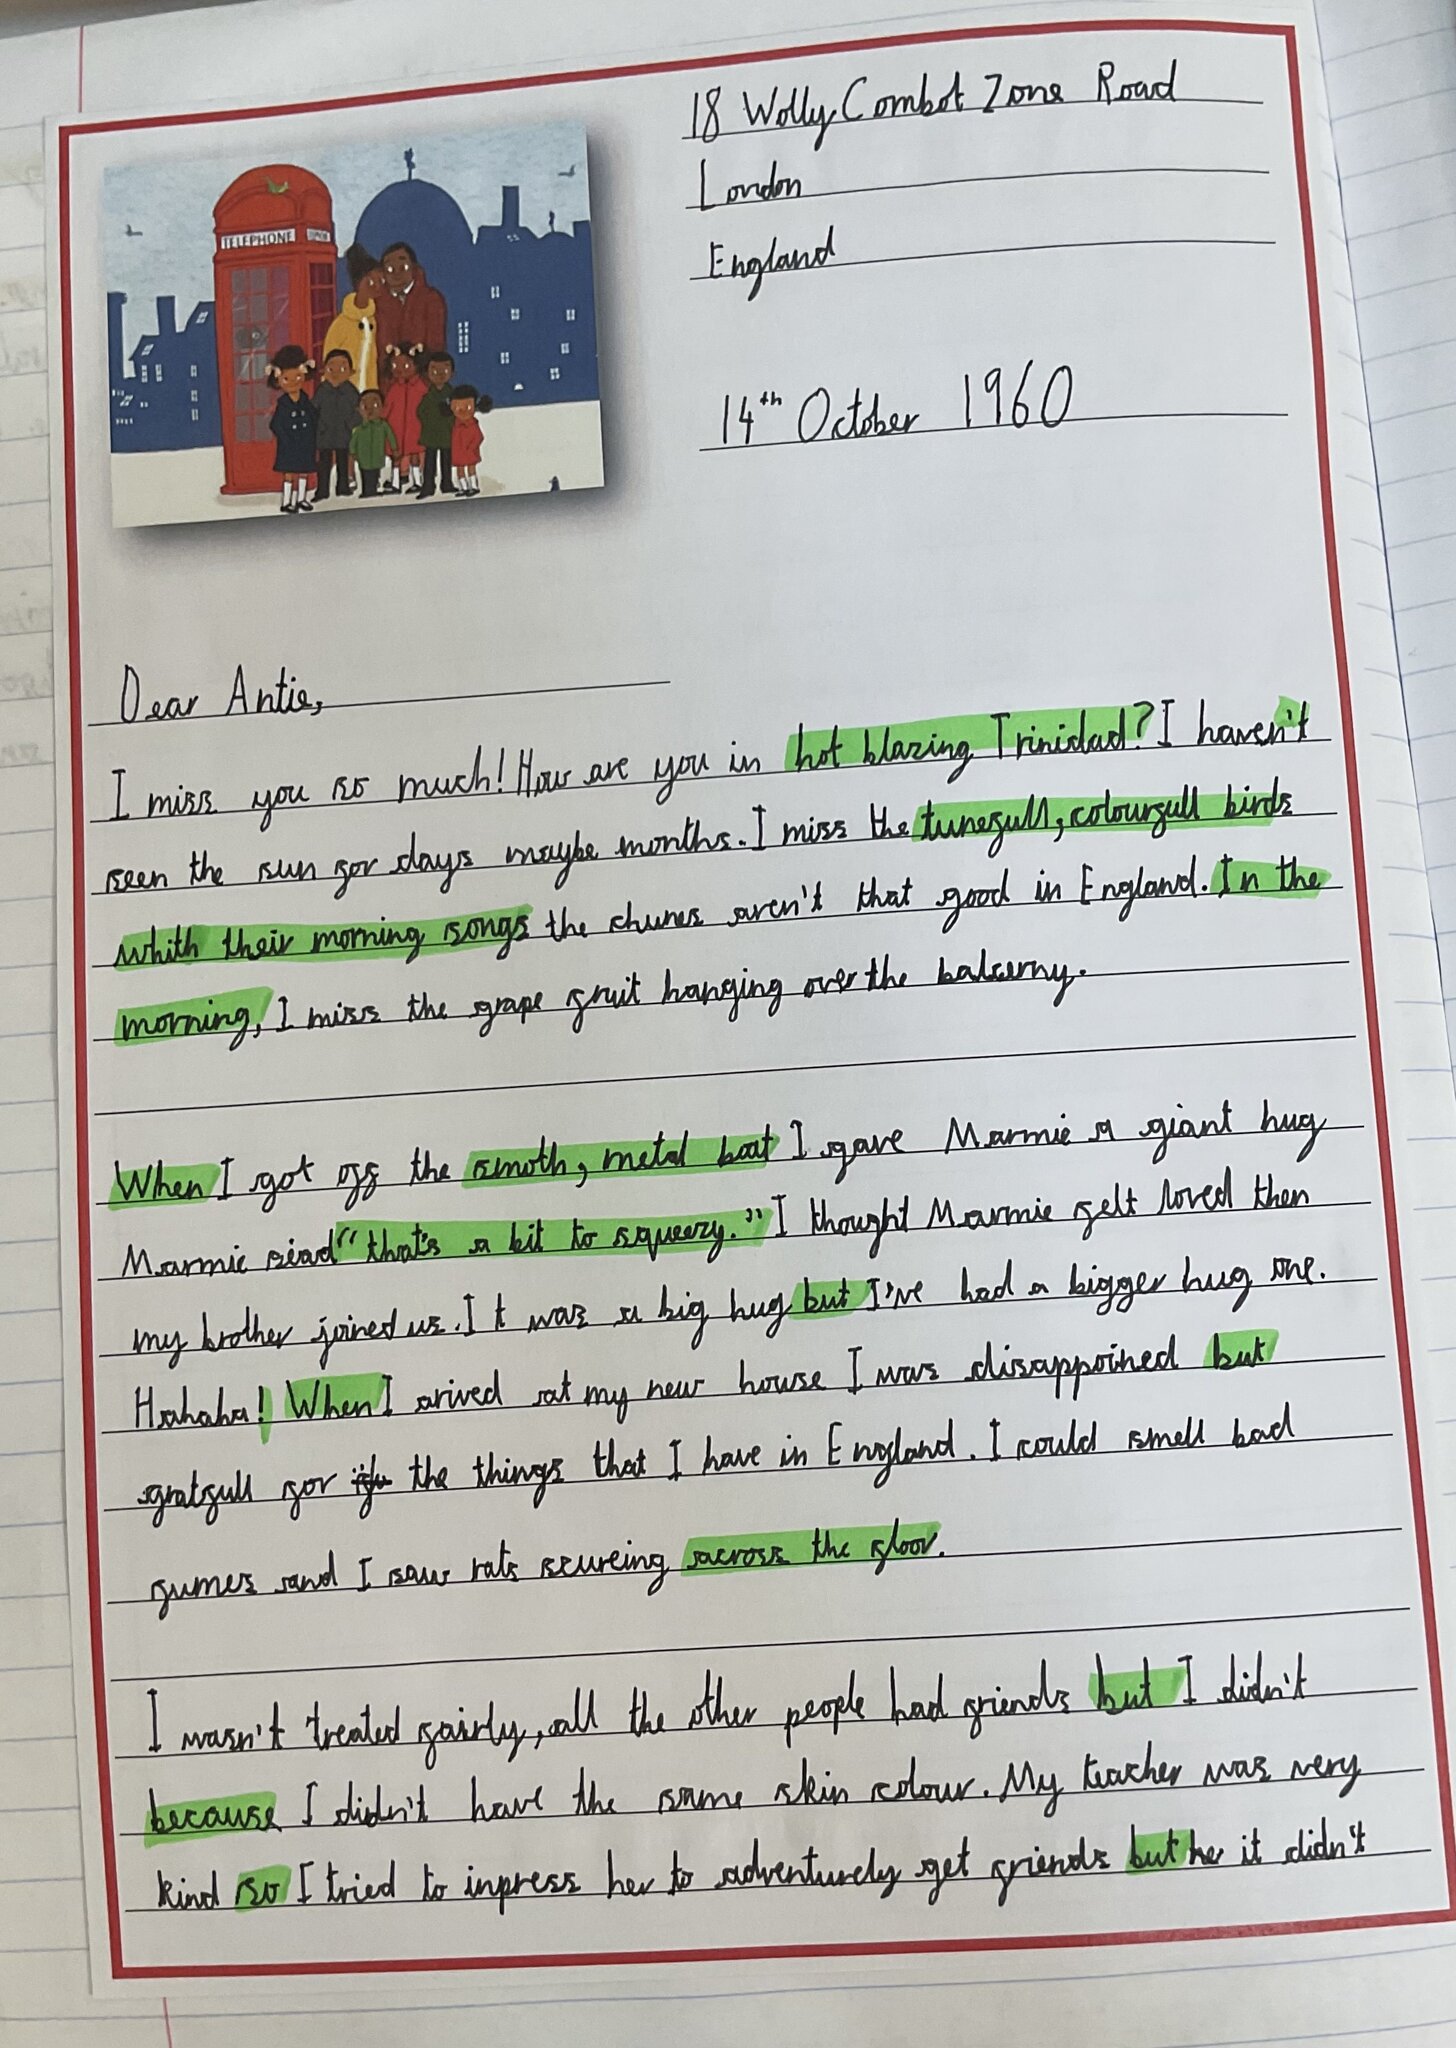 18 Wolly Combat Zone Road
London
England
14th October 1960
TELEPHONE
Dear Antie,
I miss you so much! How are you in hot blazing Trinidad? I haven't
seen the sun for days maybe months. I miss the tunefull, colourfull birds
whith their morning songs the chunes aren't that good in England. In the
morning, I miss the grape fruit hanging over the balcerny.
When I got off the smoth, metal boat I gave Marmie a giant hug
Marmie siad "that's a bit to squeezy." I thought Marmie felt loved then
my brother joined us. It was a big hug but I've had a bigger hug one.
Hahaha! When I arived at my new house I was disappoined but
gratfull for the things that I have in England. I could smell bad
fumes and I saw rats scureing across the floor.
I wasn't treated fairly, all the other people had friends but I didn't
because I didn't have the same skin colour. My teacher was very
kind so I tried to inpress her to adventurely get friends but he it didn't